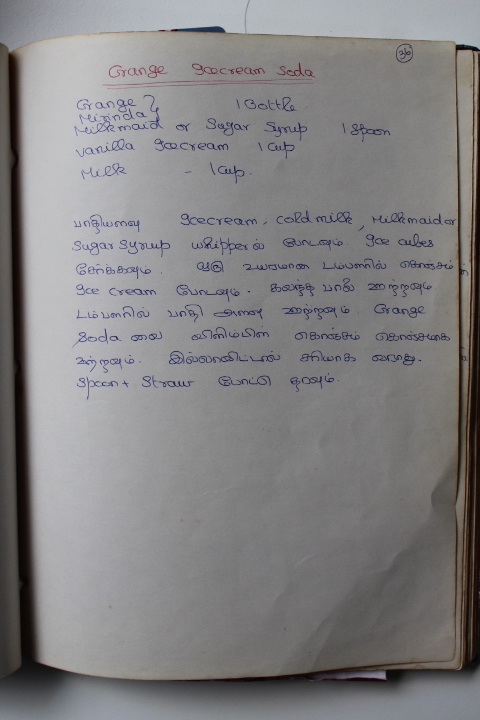 36
Orange Icecream Soda
Orange }
Mirinda } 1 Bottle
Milkmaid or Sugar Syrup 1 Spoon
Vanilla Icecream 1 Cup
Milk - 1 Cup.
பாதியளவு Icecream, Cold milk, Milkmaid or
Sugar Syrup whipperல் போடவும். Ice cubes
சேர்க்கவும். ஒரு உயரமான டம்ளரில் கொஞ்சம்
Ice cream போடவும். கலந்த பால் ஊற்றவும்
டம்ளரில் பாதி அளவு ஊற்றவும். Orange
Soda வை விளிம்பின் கொஞ்சம் கொஞ்சமாக
ஊற்றவும். இல்லாவிட்டால் சரியாக வராது.
Spoon + Straw போட்டு தரவும்.